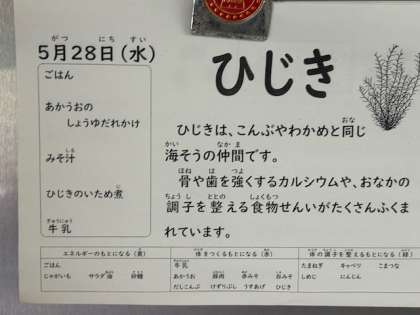 5月28日(水)
ごはん
あかうおの
しょうゆだれかけ
みそ汁
ひじきのいため煮
牛乳
ひじき
ひじきは、こんぶやわかめと同じ
海そうの仲間です。
骨や歯を強くするカルシウムや、おなかの
調子を整える食物せんいがたくさんふくま
れています。
エネルギーのもとになる(黄)
体をつくるもとになる(赤)
体の調子を整えるもとになる(緑)
ごはん
じゃがいも サラダ油 砂糖
牛乳
あかうお 豚肉 赤みそ 白みそ
だしこんぶ けずりぶし うすあげ ひじき
たまねぎ キャベツ こまつな
しめじ にんじん